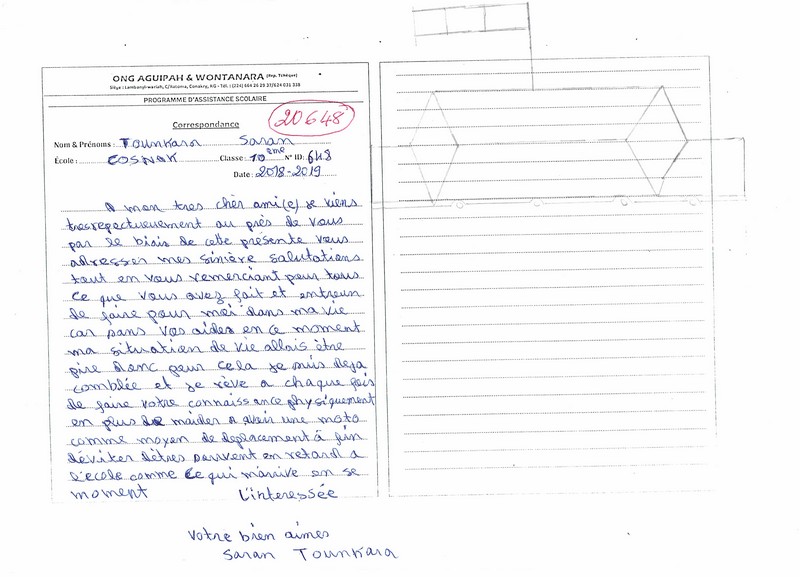 ONG AGUIPAH & WONTANARA (Rep. Tchèque)
Siège : Lambanyi-wariah, C/Ratoma, Conakry, RG - Tél. : (224) 664 26 29 37/624 031 338
PROGRAMME D'ASSISTANCE SCOLAIRE
Correspondance
20648
Nom & Prénoms : Tounkara Saran
École : COSNAK Classe : 10ème N° ID: 648
Date : 2018-2019
A mon tres cher ami(e) je viens
tresrepectueuement au près de vous
par le biais de cette présente vous
adresser mes sinière salutations
tout en vous remerciant pour tous
ce que vous avez fait et entreun
de faire pour moi dans ma vie
car sans vos aides en ce moment
ma situation de vie allais être
pire donc pour cela je suis deja
comblée et je rève a chaque fois
de faire votre connaissance physiquement
en plus de maider a avoir une moto
comme moyen de deplacement à fin
déviter dètres souvent en retard a
l'ecole comme ce qui m'arrive en se
moment L'interessée
Votre bien aimes
Saran Tounkara